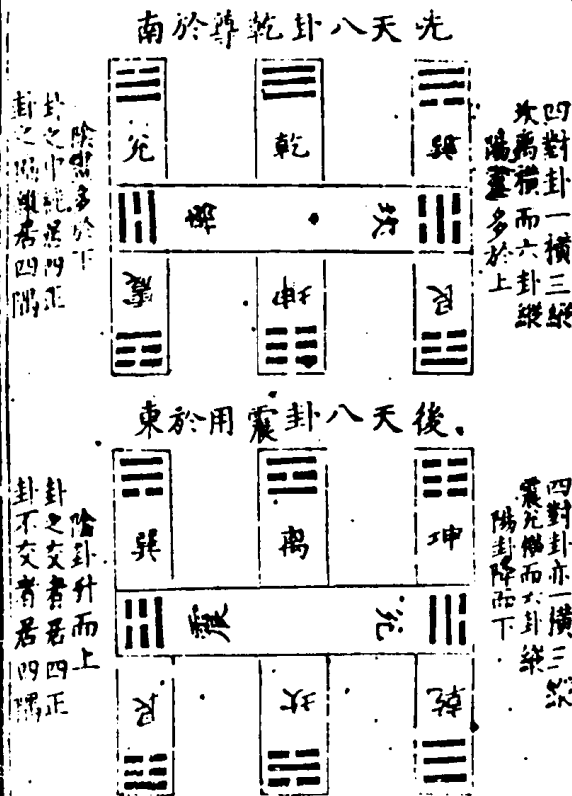 先天八卦乾尊於南
四對卦一橫三縱
坎离橫而六卦縱
陽畫多於上
巽
乾
兌
坎
离
艮
坤
震
陰畫多於下
卦之中 居四正
卦之 居四隅
後天八卦震用於東
四對卦亦一橫三縱
震兌橫而六卦縱
陽卦降而下
坤
离
巽
兌
震
乾
坎
艮
陰卦升而上
卦之交者居四正
卦不交者居四隅